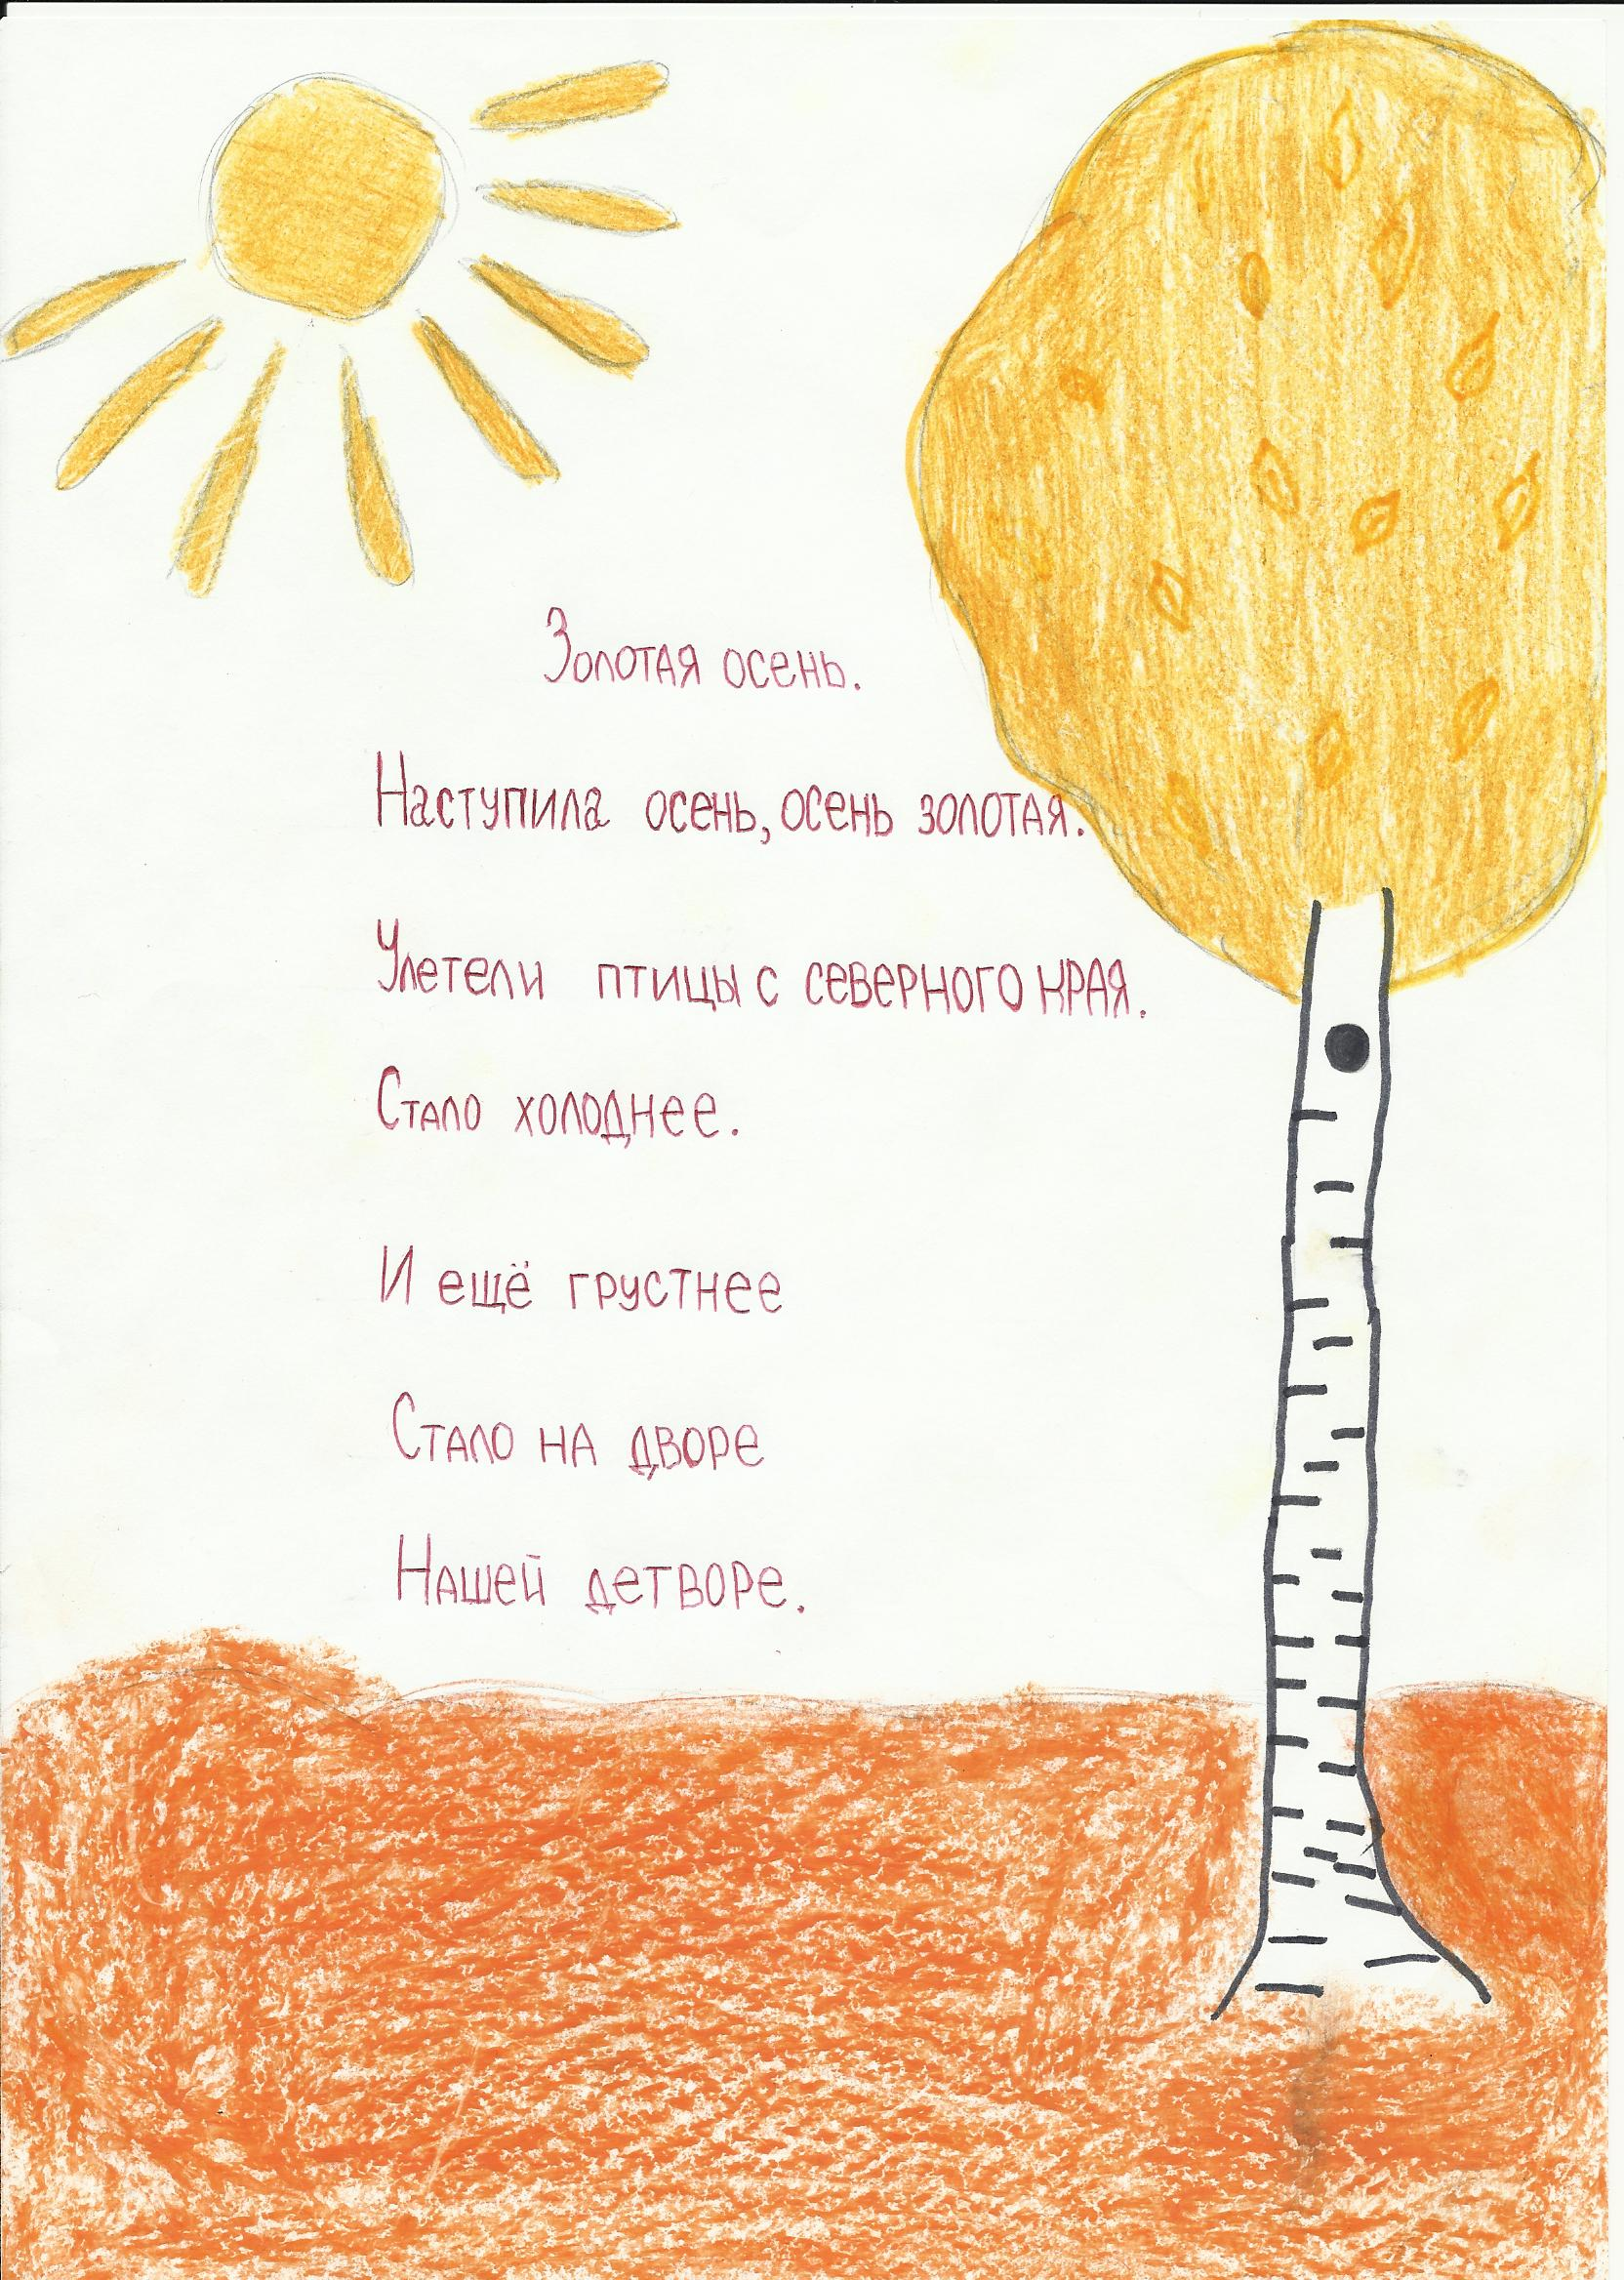 Золотая осень.
Наступила осень, осень золотая.
Улетели птицы с северного края.
Стало холоднее.
И ещё грустнее
Стало на дворе
Нашей детворе.